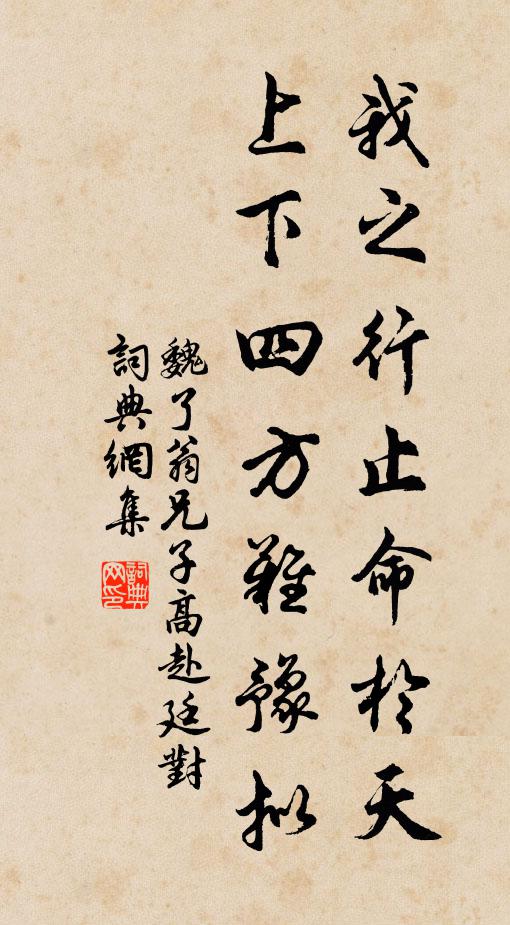 我之行止命於天
上下四方難豫擬
魏了翁兄子高赴廷對
詞典網集
詞典网印